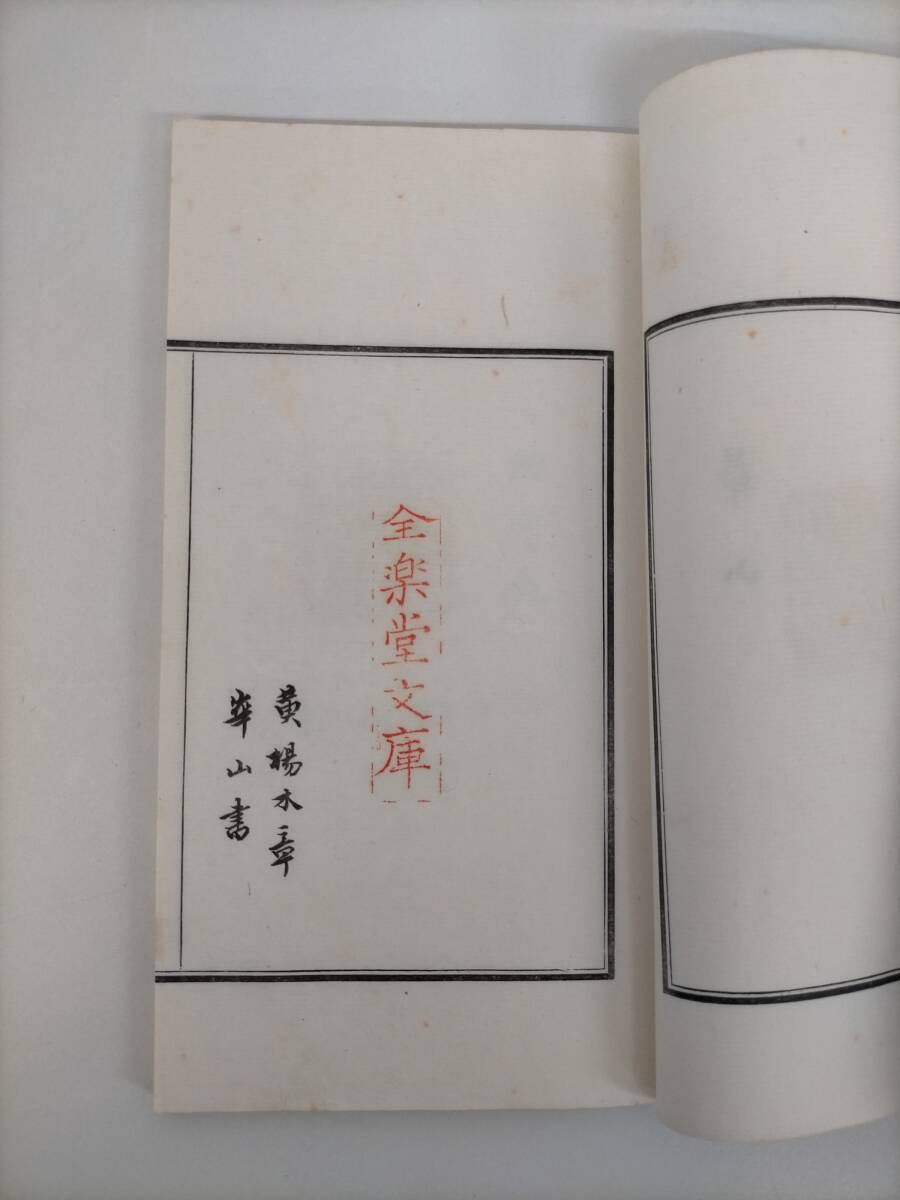 全楽堂文庫
黄楊木章
崋山書